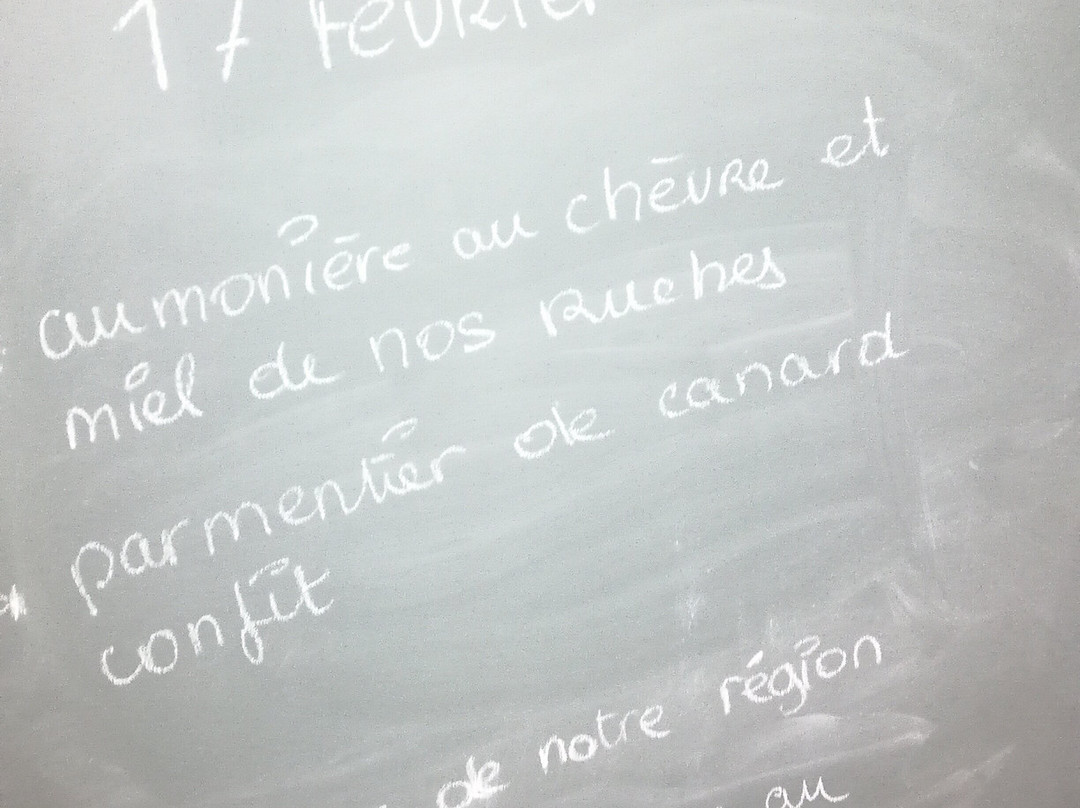 17 février
aumonière au chèvre et
miel de nos ruches
parmentier de canard
confit
de notre région
au